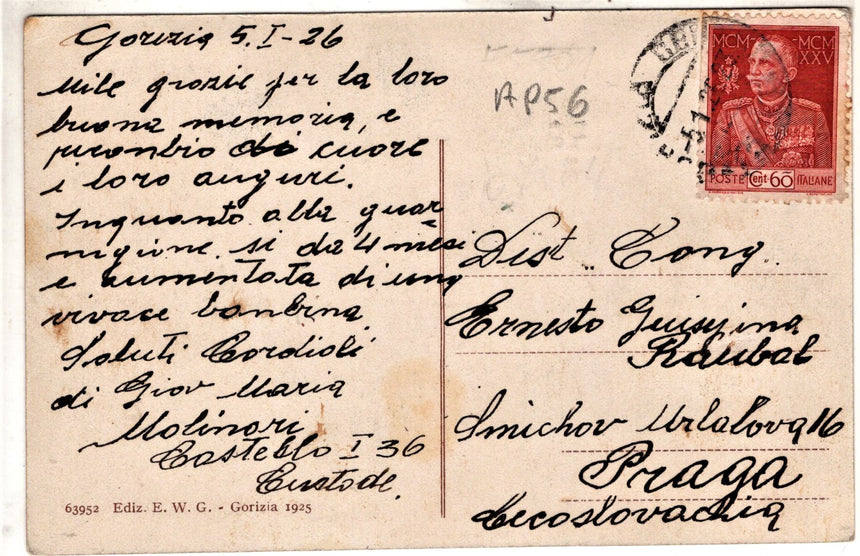 Gorizia 5.I-26
Mile grazie per la loro
buona memoria, e
ricambio di cuore
i loro auguri.
Inquanto alla guar-
nigione si da 4 mesi
e aumentata di una
vivace bambina
Saluti Cordioli
di Giov Maria
Molinari
Castello I 36
Custode.
63952 Ediz. E. W. G. - Gorizia 1925
AP56
MCM MCM
XXV
POSTE Cent 60 ITALIANE
Dist.. Cong.
Ernesto Giusepina
Raubal
Smichov Urlalova 16
Praga
Cecoslovachia